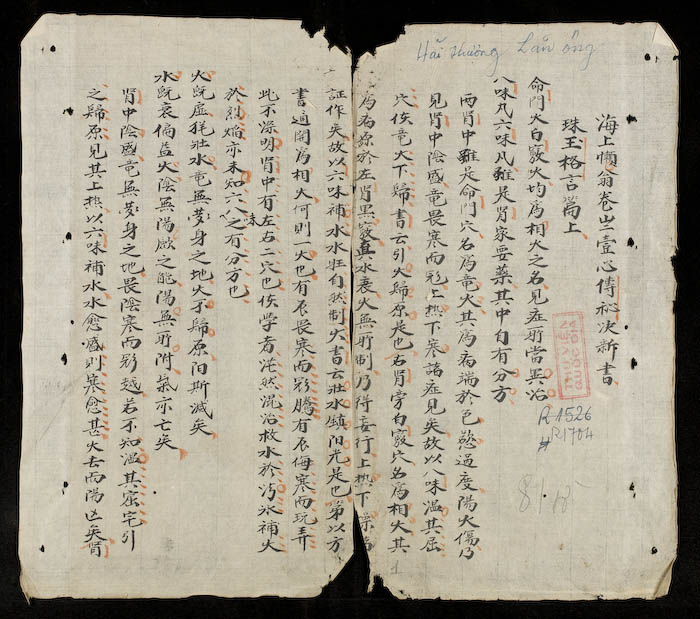 Hải thượng Lãn ông
海上懶翁卷壹心傳秘次新書
珠玉格言篇上
命門火白竅火均為相火之名見症所當異治
八味丸六味丸雖是腎家要藥其中自有分方
両腎中雖是命門穴名為竜火其為病端於色慾過度陽火傷乃
見腎中陰盛竜畏寒而彩上热下寒諸症見矣故以八味溫其屈
穴俟竜火下歸書云引火歸原是也右腎旁白竅穴名為相火其
為病源於左腎黑竅真水衰火無所制乃得妄行上热下燥
証作矣故以六味補水水旺自然制火書云壯水鎮阳光是也第以方
書通為相火何則一火也有辰畏寒而彩騰有辰侮寒而玩弄
此不深明腎中有左右二穴也俟学者茫然混治救水於冰補火
於烈焰亦未知六八味之有分方也
火既虛壯水竜無身之地火不歸原阳斯滅矣
水既衰偏益火陰無陽厥之能陽無所附氣亦亡矣
腎中陰盛竜無身之地畏陰寒而彩越若不知溫其窟宅引
之歸原見其上热以六味補水水愈盛則寒愈甚火去而陽亾矣腎
R.1526
R1704